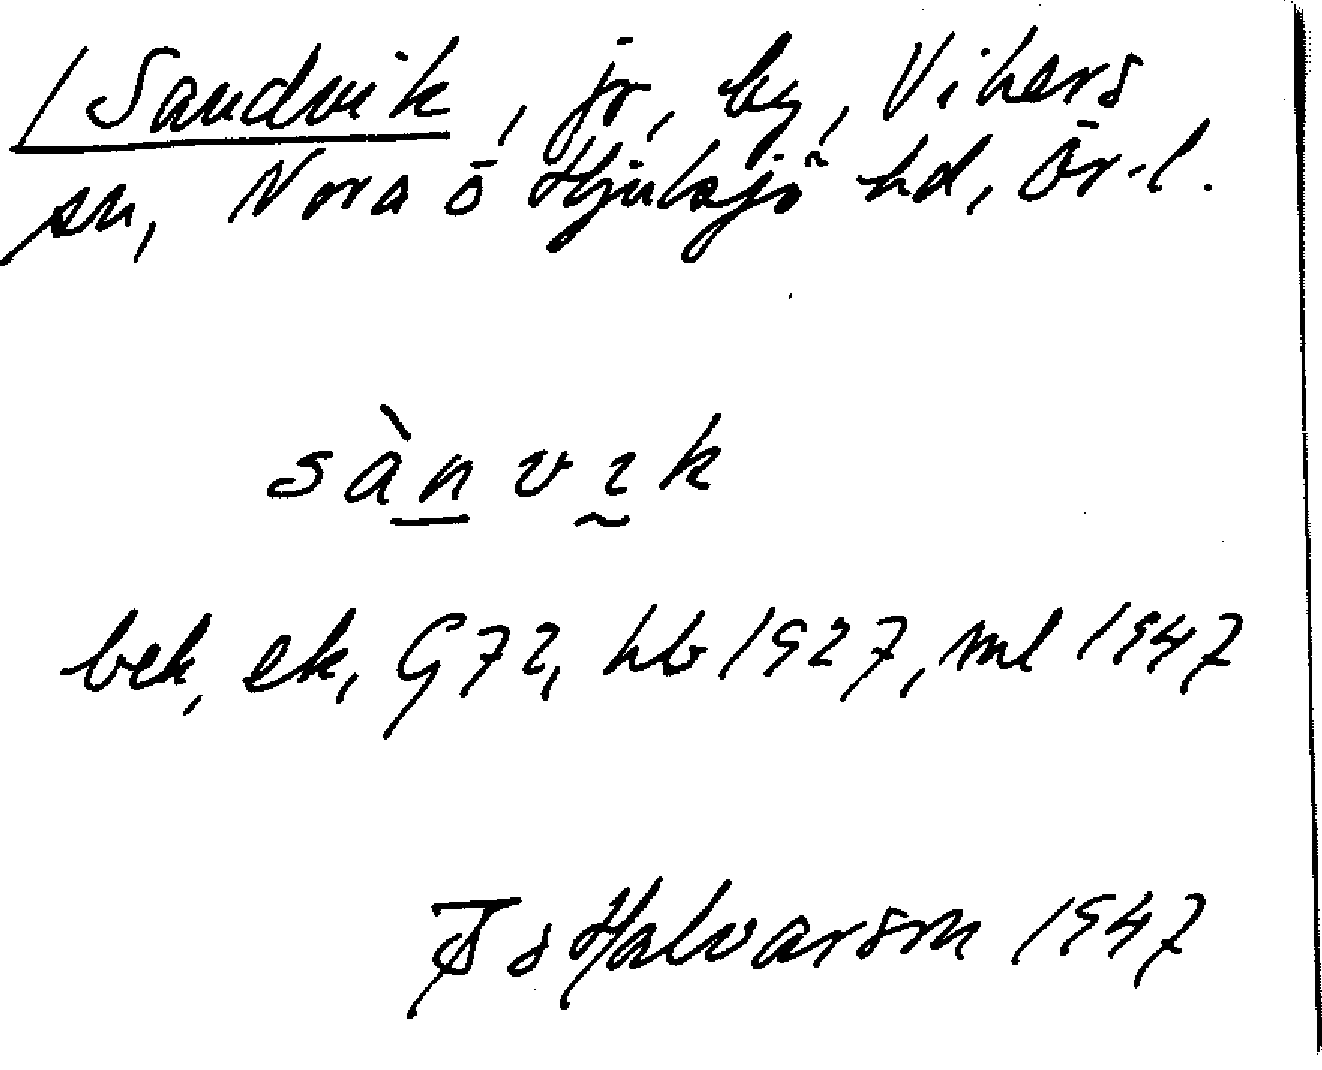 / Sandvik, jr, by, Vikers
sn, Nora o Hjulsjö hd, Ör-l.
sànvık
bek, ek, G72, hb 1927, ml 1947
Halvarson 1947